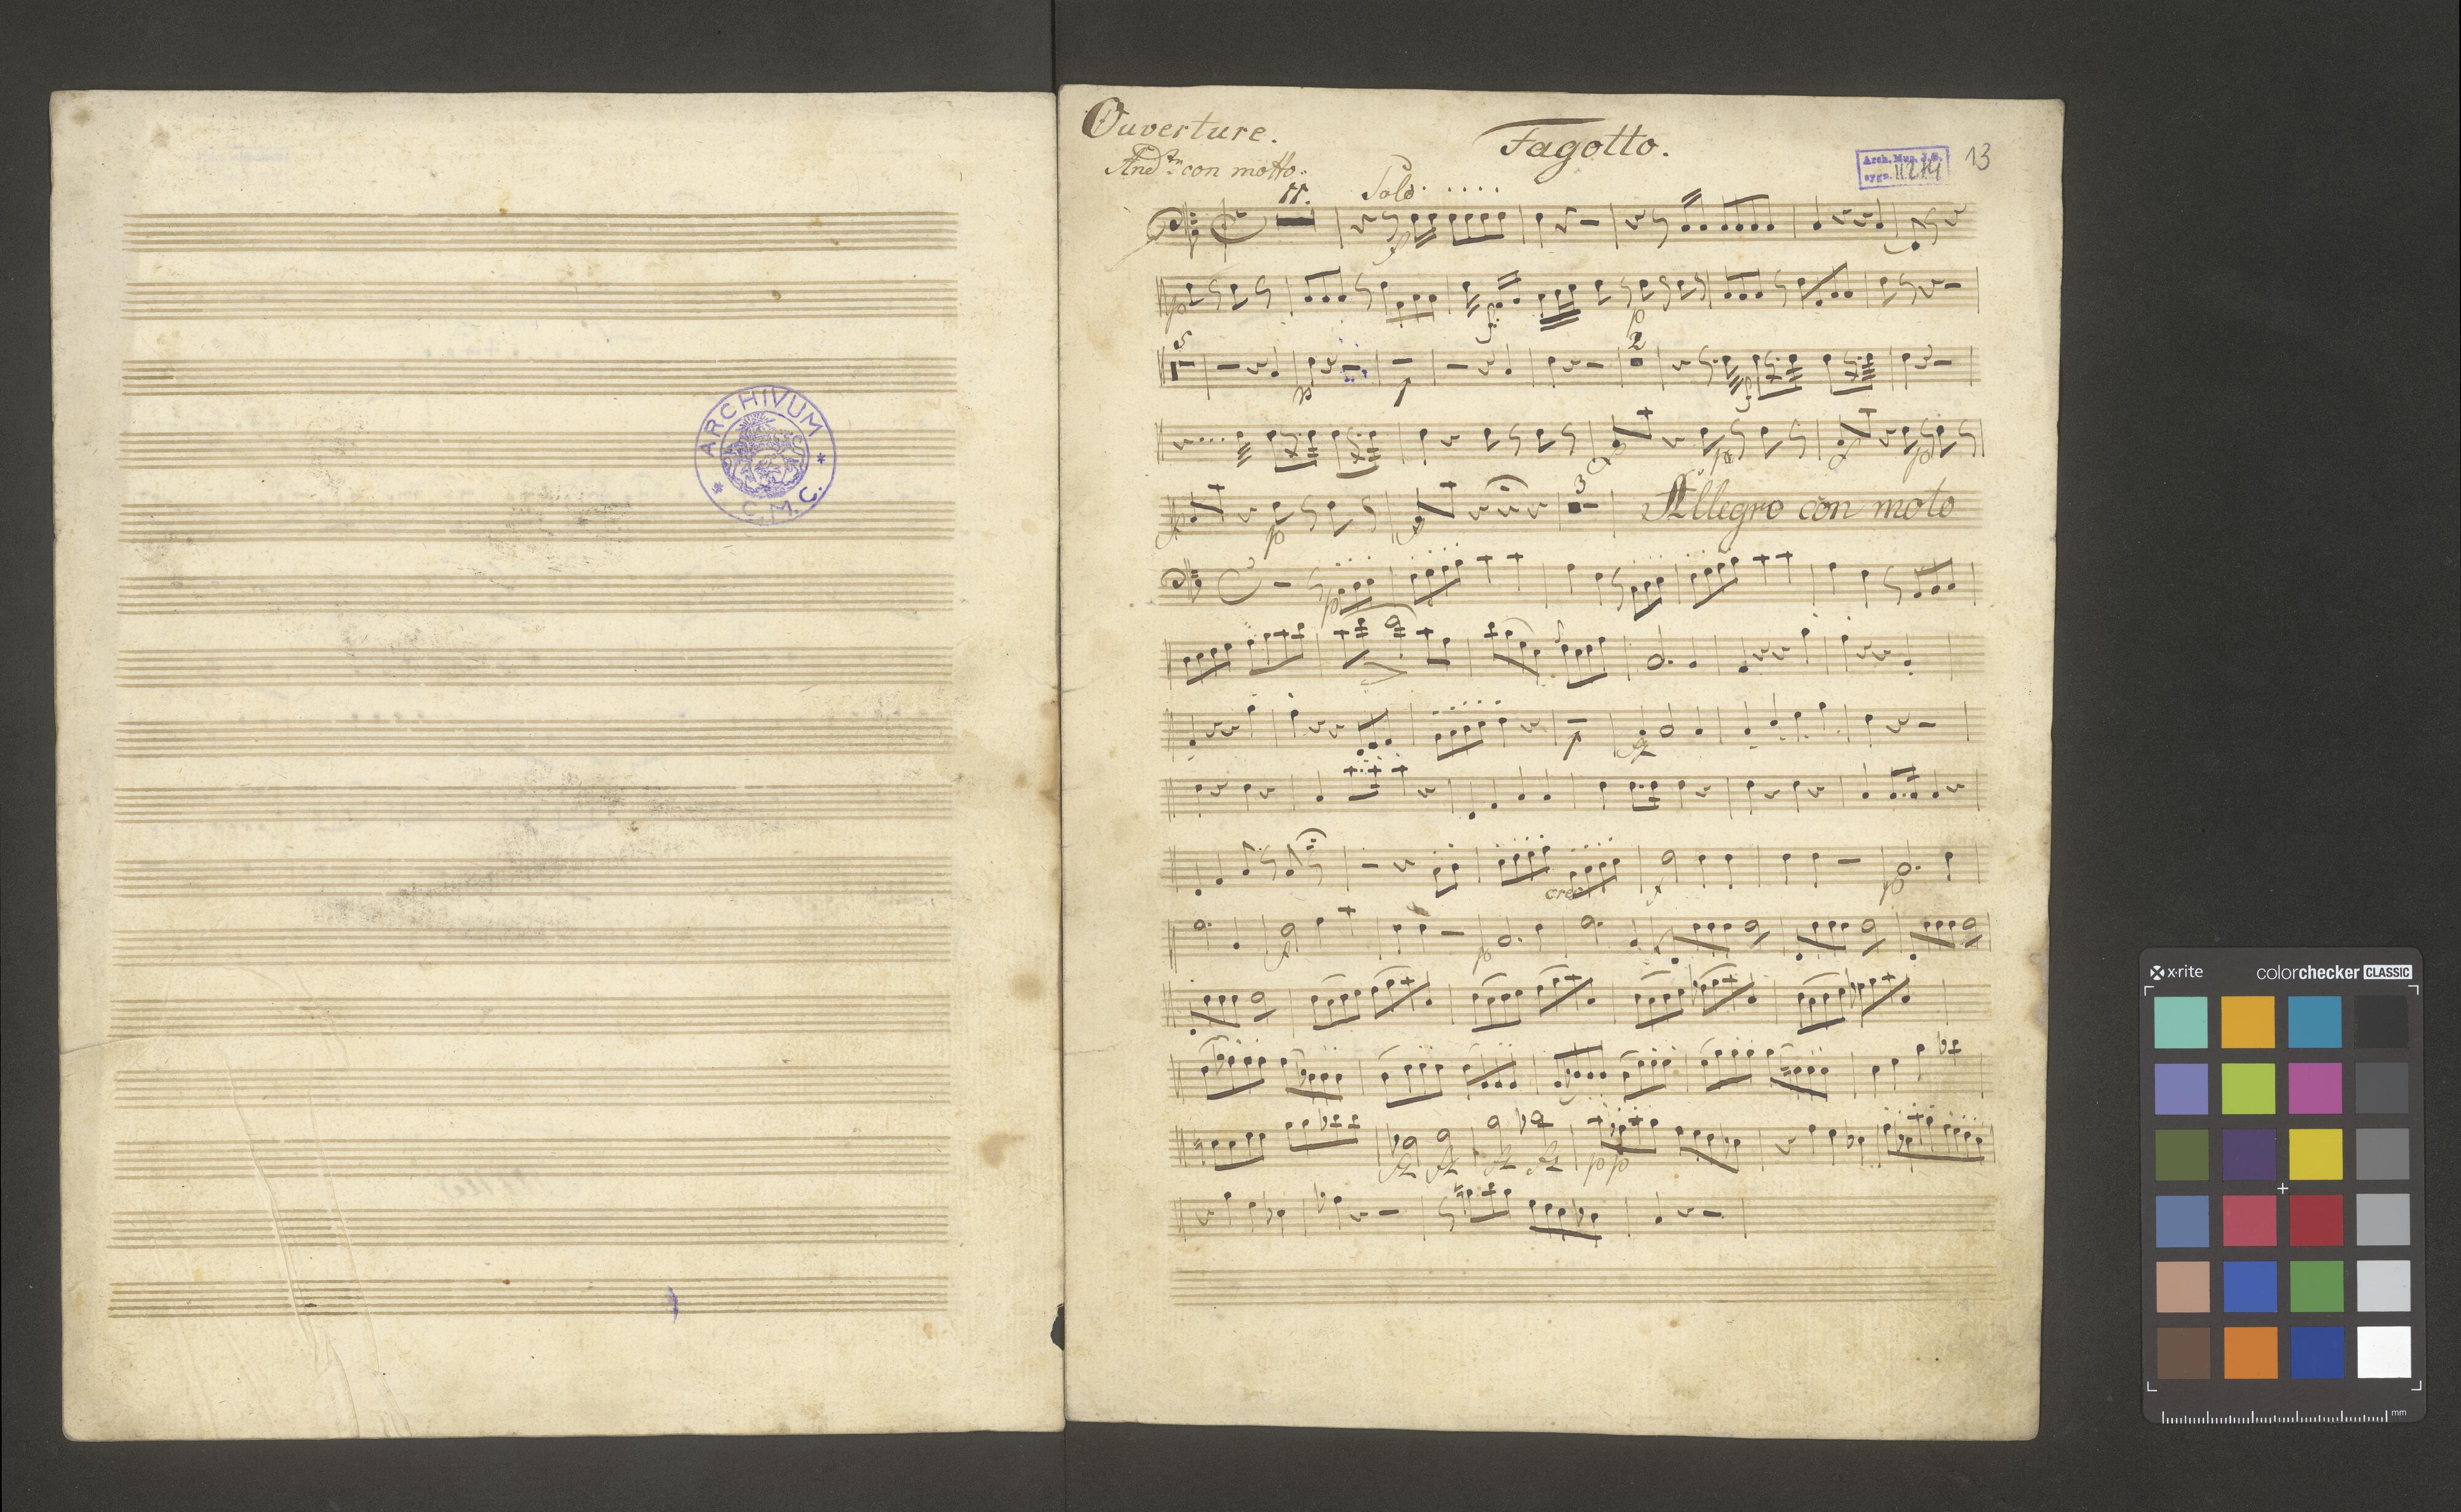 ARCHIVUM
C. M. C.
Ouverture.
Fagotto.
And.tn con motto.
Arch. Muz. J. G.
sygn. II 274
13
11.
Solo
p
p
5
2
p
p
p
3
Allegro con moto
p
cres
p
p
pp
x-rite
colorchecker CLASSIC
mm